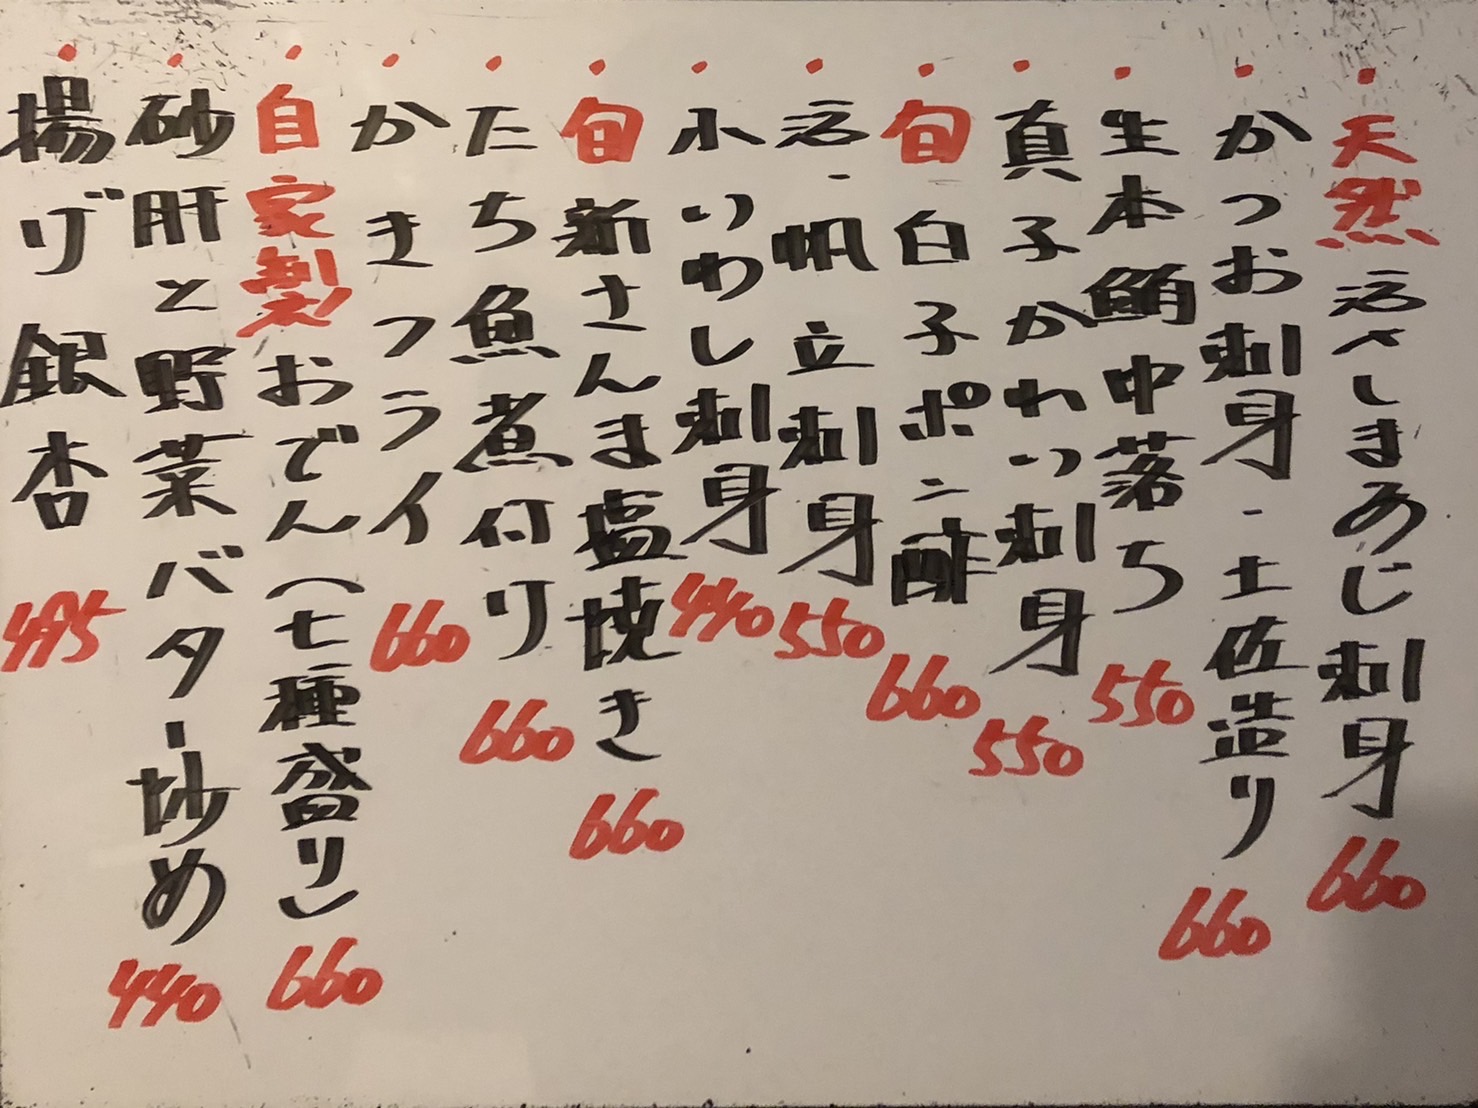 ・天然活〆しまあじ刺身 660
・かつお刺身・土佐造り 660
・生本鮪中落ち 550
・真子かれい刺身 550
・旬白子ポン酢 660
・活・帆立刺身 550
・小いわし刺身 440
・旬新さんま塩焼き 660
・たち魚煮付り 660
・かきフライ 660
・自家製おでん(七種盛り) 660
・砂肝と野菜バター炒め 440
・揚げ銀杏 495